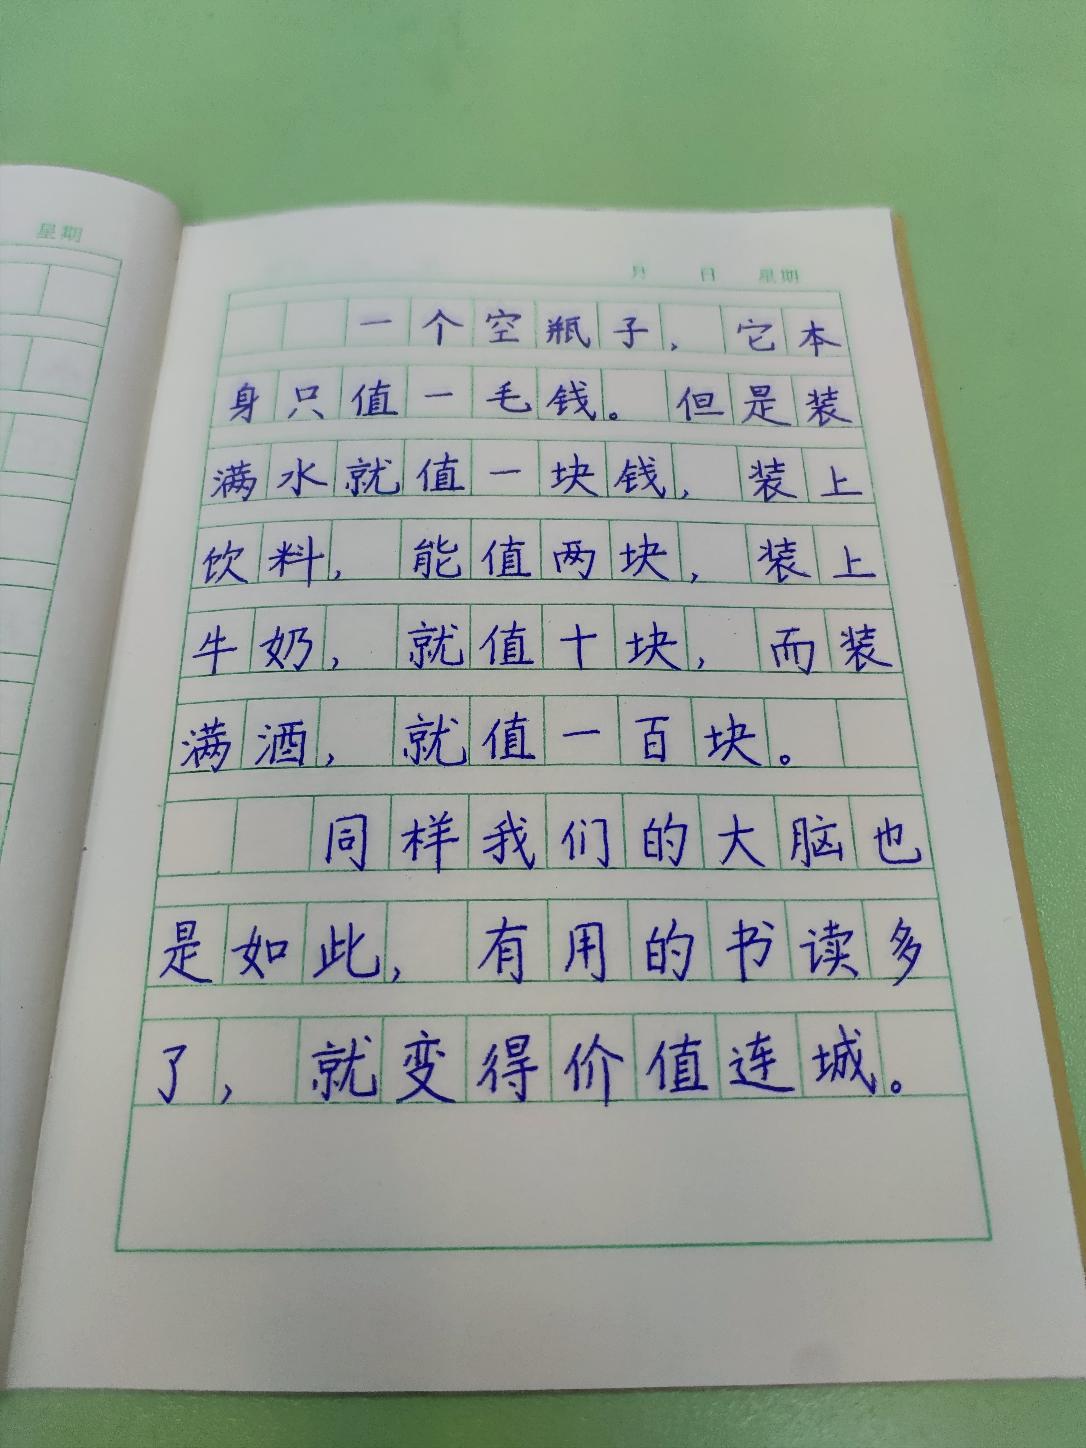 星期
月 日 星期
一个空瓶子，它本
身只值一毛钱。但是装
满水就值一块钱，装上
饮料，能值两块，装上
牛奶，就值十块，而装
满酒，就值一百块。
同样我们的大脑也
是如此，有用的书读多
了，就变得价值连城。